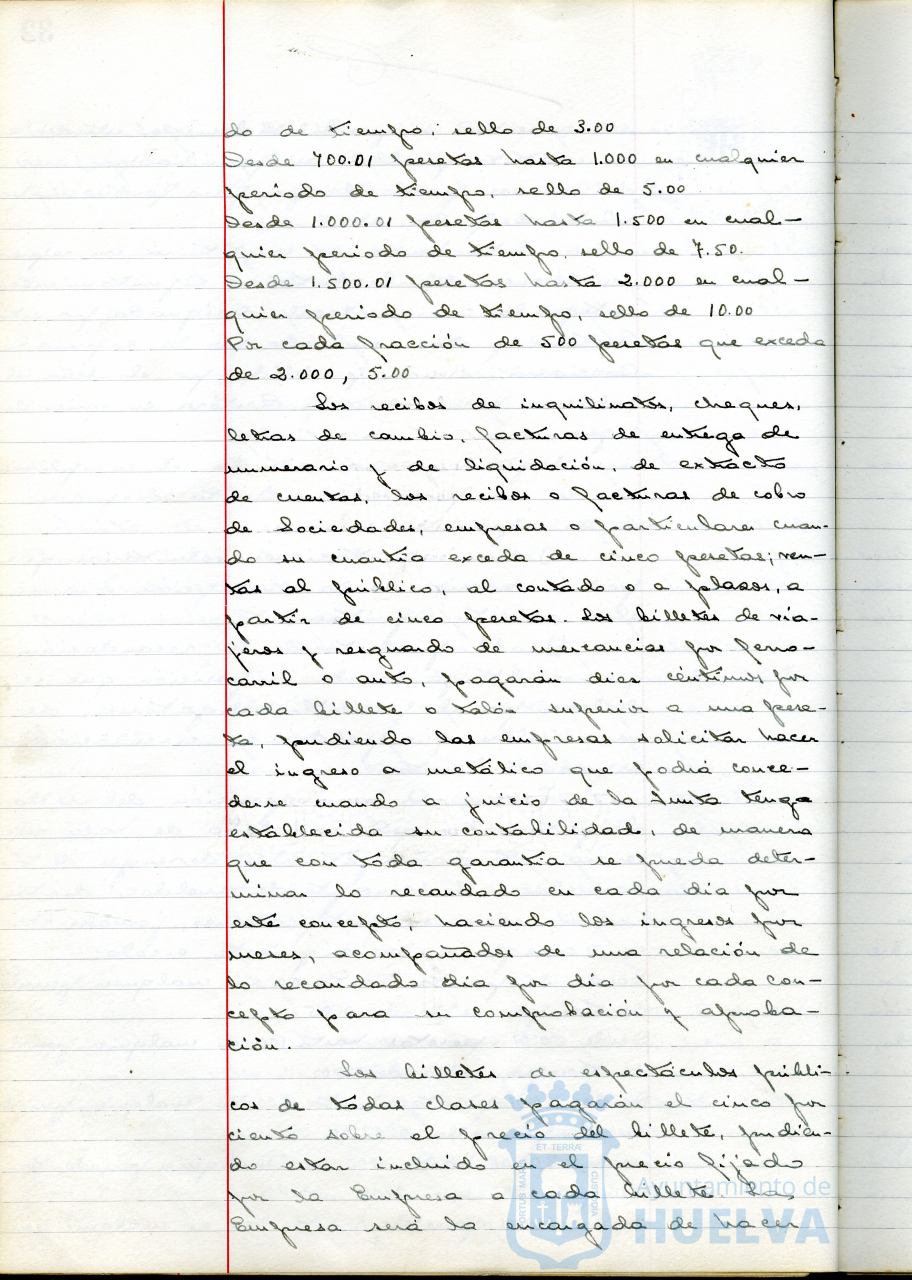 do de tiempo, sello de 3.00
Desde 700.01 pesetas hasta 1.000 en cualquier
periodo de tiempo, sello de 5.00
Desde 1.000.01 pesetas hasta 1.500 en cual-
quier periodo de tiempo, sello de 7.50.
Desde 1.500.01 pesetas hasta 2.000 en cual-
quier periodo de tiempo, sello de 10.00
Por cada fracción de 500 pesetas que exceda
de 2.000, 5.00
Los recibos de inquilinatos, cheques,
letras de cambio, facturas de entrega de
numerario y de liquidación, de extracto
de cuentas, los recibos o facturas de cobro
de Sociedades, empresas o particulares cuan-
do su cuantia exceda de cinco pesetas; ven-
tas al público, al contado o a plazos, a
partir de cinco pesetas. Los billetes de via-
jeros y resguardo de mercancias por ferro-
carril o auto, pagarán diez céntimos por
cada billete o talón superior a una pese-
ta, pudiendo las empresas solicitar hacer
el ingreso a metálico que podrá conce-
derse cuando a juicio de la Junta tenga
establecida su contabilidad, de manera
que con toda garantia se pueda deter-
minar lo recaudado en cada dia por
este concepto, haciendo los ingresos por
meses, acompañados de una relación de
lo recaudado dia por dia por cada con-
cepto para su comprobación y aproba-
ción.
Los billetes de espectáculos públi-
cos de todas clases pagarán el cinco por
ciento sobre el precio del billete, pudien-
do estar incluido en el precio fijado
por la Empresa a cada billete. La
Empresa será la encargada de hacer
ET TERRA
PORTUS MARIS
CUSTODIA
Ayuntamiento de
HUELVA